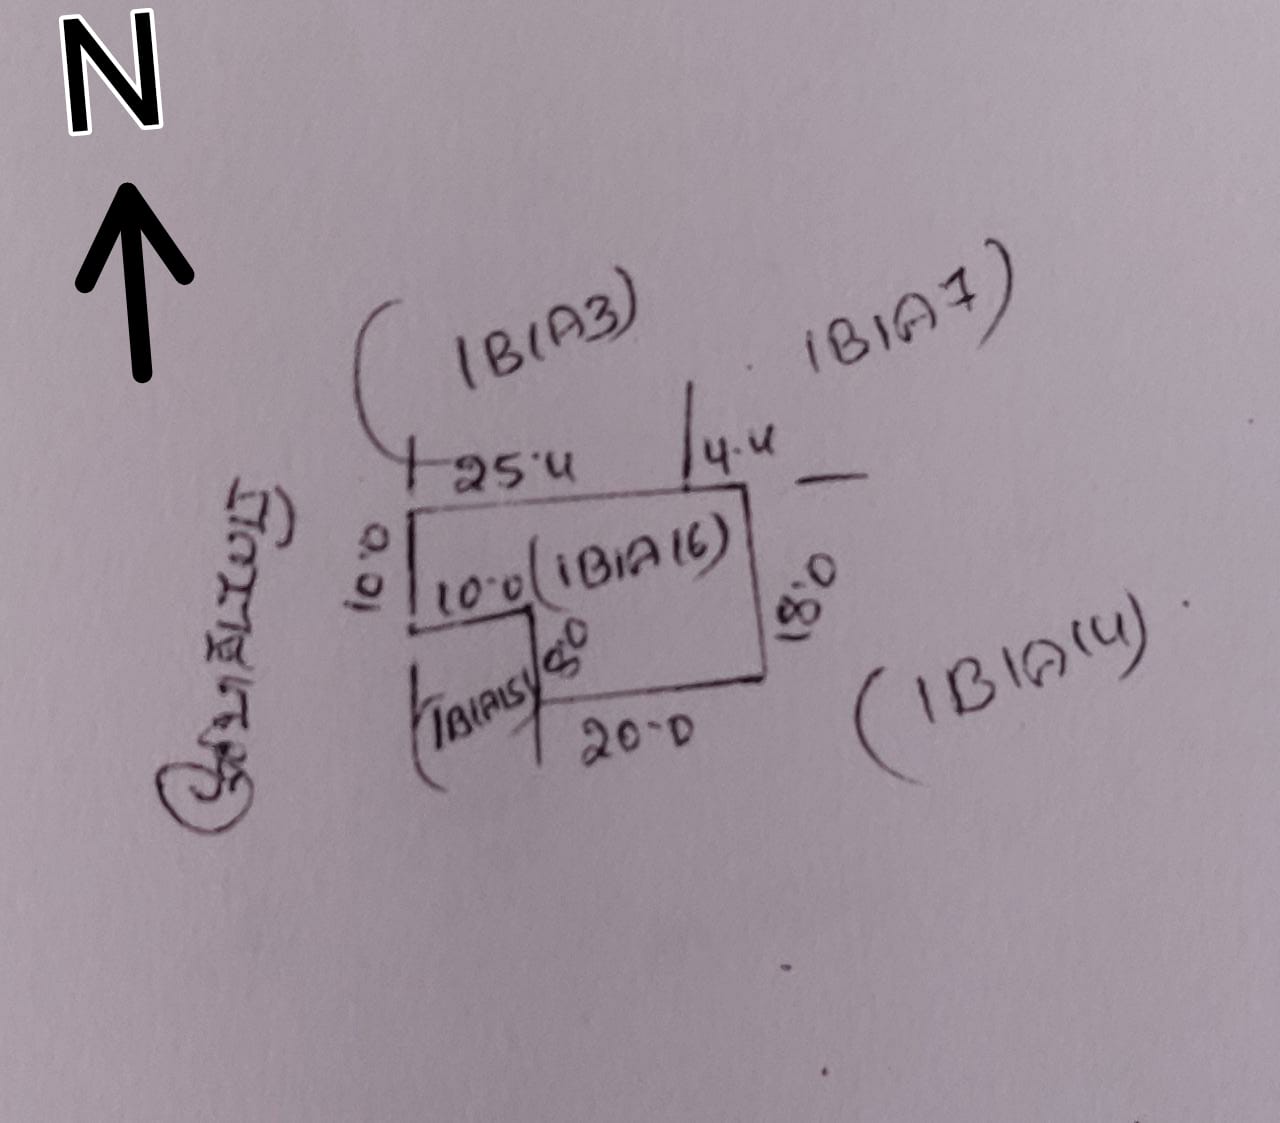 N
(1B1A3)
1B1A7)
25.4
4.4
10.0
10.0
(1B1A16)
18.0
8.0
(1B1A14)
1B1A15)
20.0